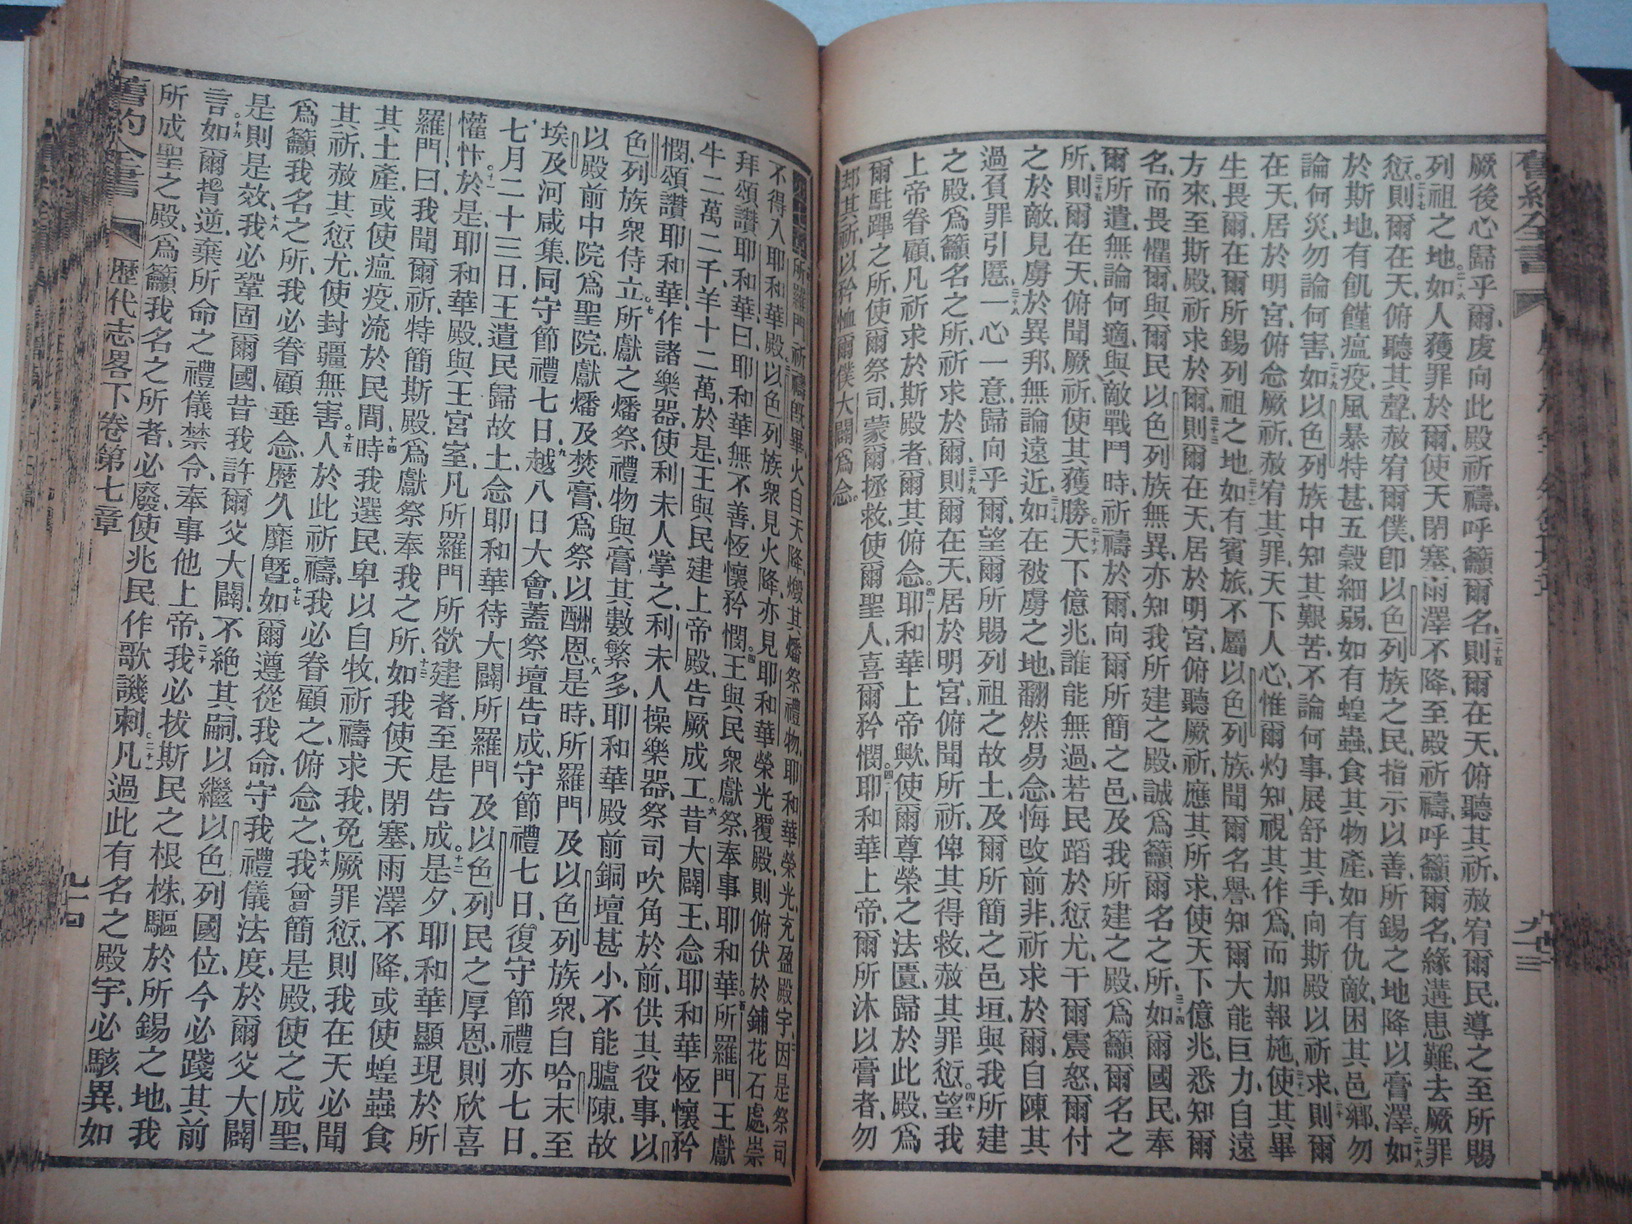 舊約全書
厥後心歸乎爾虔向此殿祈禱呼籲爾名二十五則爾在天俯聽其祈赦宥爾民導之至所賜
列祖之地二十六如人獲罪於爾使天閉塞雨澤不降至殿祈禱呼籲爾名緣遘患難去厥罪
愆二十七則爾在天俯聽其聲赦宥爾僕卽以色列族之民指示以善所錫之地降以膏澤二十八如
於斯地有飢饉瘟疫風暴特甚五穀細弱如有蝗蟲食其物產如有仇敵困其邑鄉勿
論何災勿論何害二十九如以色列族中知其艱苦不論何事展舒其手向斯殿以祈求三十則爾
在天居於明宮俯念厥祈赦宥其罪天下人心惟爾灼知視其作爲而加報施三十一使其畢
生畏爾在爾所錫列祖之地三十二如有賓旅不屬以色列族聞爾名譽知爾大能巨力自遠
方來至斯殿祈求於爾三十三則爾在天居於明宮俯聽厥祈應其所求使天下億兆悉知爾
名而畏懼爾與爾民以色列族無異亦知我所建之殿誠爲籲爾名之所三十四如爾國民奉
爾所遣無論何適與敵戰鬥時祈禱於爾向爾所簡之邑及我所建之殿爲籲爾名之
所三十五則爾在天俯聞厥祈使其獲勝三十六天下億兆誰能無過若民蹈於愆尤干爾震怒爾付
之於敵見虜於異邦無論遠近三十七如在被虜之地翻然易念悔改前非祈求於爾自陳其
過負罪引慝三十八一心一意歸向乎爾望爾所賜列祖之故土及爾所簡之邑垣與我所建
之殿爲籲名之所祈求於爾三十九則爾在天居於明宮俯聞所祈俾其得救赦其罪愆四十望我
上帝眷顧凡祈求於斯殿者爾其俯念四一耶和華上帝歟使爾尊榮之法匱歸於此殿爲
爾駐蹕之所使爾祭司蒙爾拯救使爾聖人喜爾矜憫四二耶和華上帝爾所沐以膏者勿
却其祈以矜恤爾僕大闢爲念
九百三
第七章所羅門祈禱旣畢火自天降燬其燔祭禮物耶和華榮光充盈殿宇因是祭司
不得入耶和華殿以色列族衆見火降亦見耶和華榮光覆殿則俯伏於鋪花石處崇
拜頌讚耶和華曰耶和華無不善恆懷矜憫四王與民衆獻祭奉事耶和華五所羅門王獻
牛二萬二千羊十二萬於是王與民建上帝殿告厥成工六昔大闢王念耶和華恆懷矜
憫頌讚耶和華作諸樂器使利未人掌之利未人操樂器祭司吹角於前供其役事以
色列族衆侍立七所獻之燔祭禮物與膏其數繁多耶和華殿前銅壇甚小不能臚陳故
以殿前中院爲聖院獻燔及焚膏爲祭以酬恩八是時所羅門及以色列族衆自哈末至
埃及河咸集同守節禮七日九越八日大會蓋祭壇告成守節禮七日復守節禮亦七日
七月二十三日王遣民歸故土念耶和華待大闢所羅門及以色列民之厚恩則欣喜
懽忭十一於是耶和華殿與王宮室凡所羅門所欲建者至是告成十二是夕耶和華顯現於所
羅門曰我聞爾祈特簡斯殿爲獻祭奉我之所十三如我使天閉塞雨澤不降或使蝗蟲食
其土產或使瘟疫流於民間十四時我選民卑以自牧祈禱求我免厥罪愆則我在天必聞
其祈赦其愆尤使封疆無害十五人於此祈禱我必眷顧之俯念之十六我曾簡是殿使之成聖
爲籲我名之所我必眷顧垂念歷久靡曁十七如爾遵從我命守我禮儀法度於爾父大闢
是則是效十八我必鞏固爾國昔我許爾父大闢不絕其嗣以繼以色列國位今必踐其前
言十九如爾曹逆棄所命之禮儀禁令奉事他上帝二十我必拔斯民之根株驅於所錫之地我
所成聖之殿爲籲我名之所者必廢使兆民作歌譏刺二十一凡過此有名之殿宇必駭異如
舊約全書 歷代志畧下卷第七章 九百四